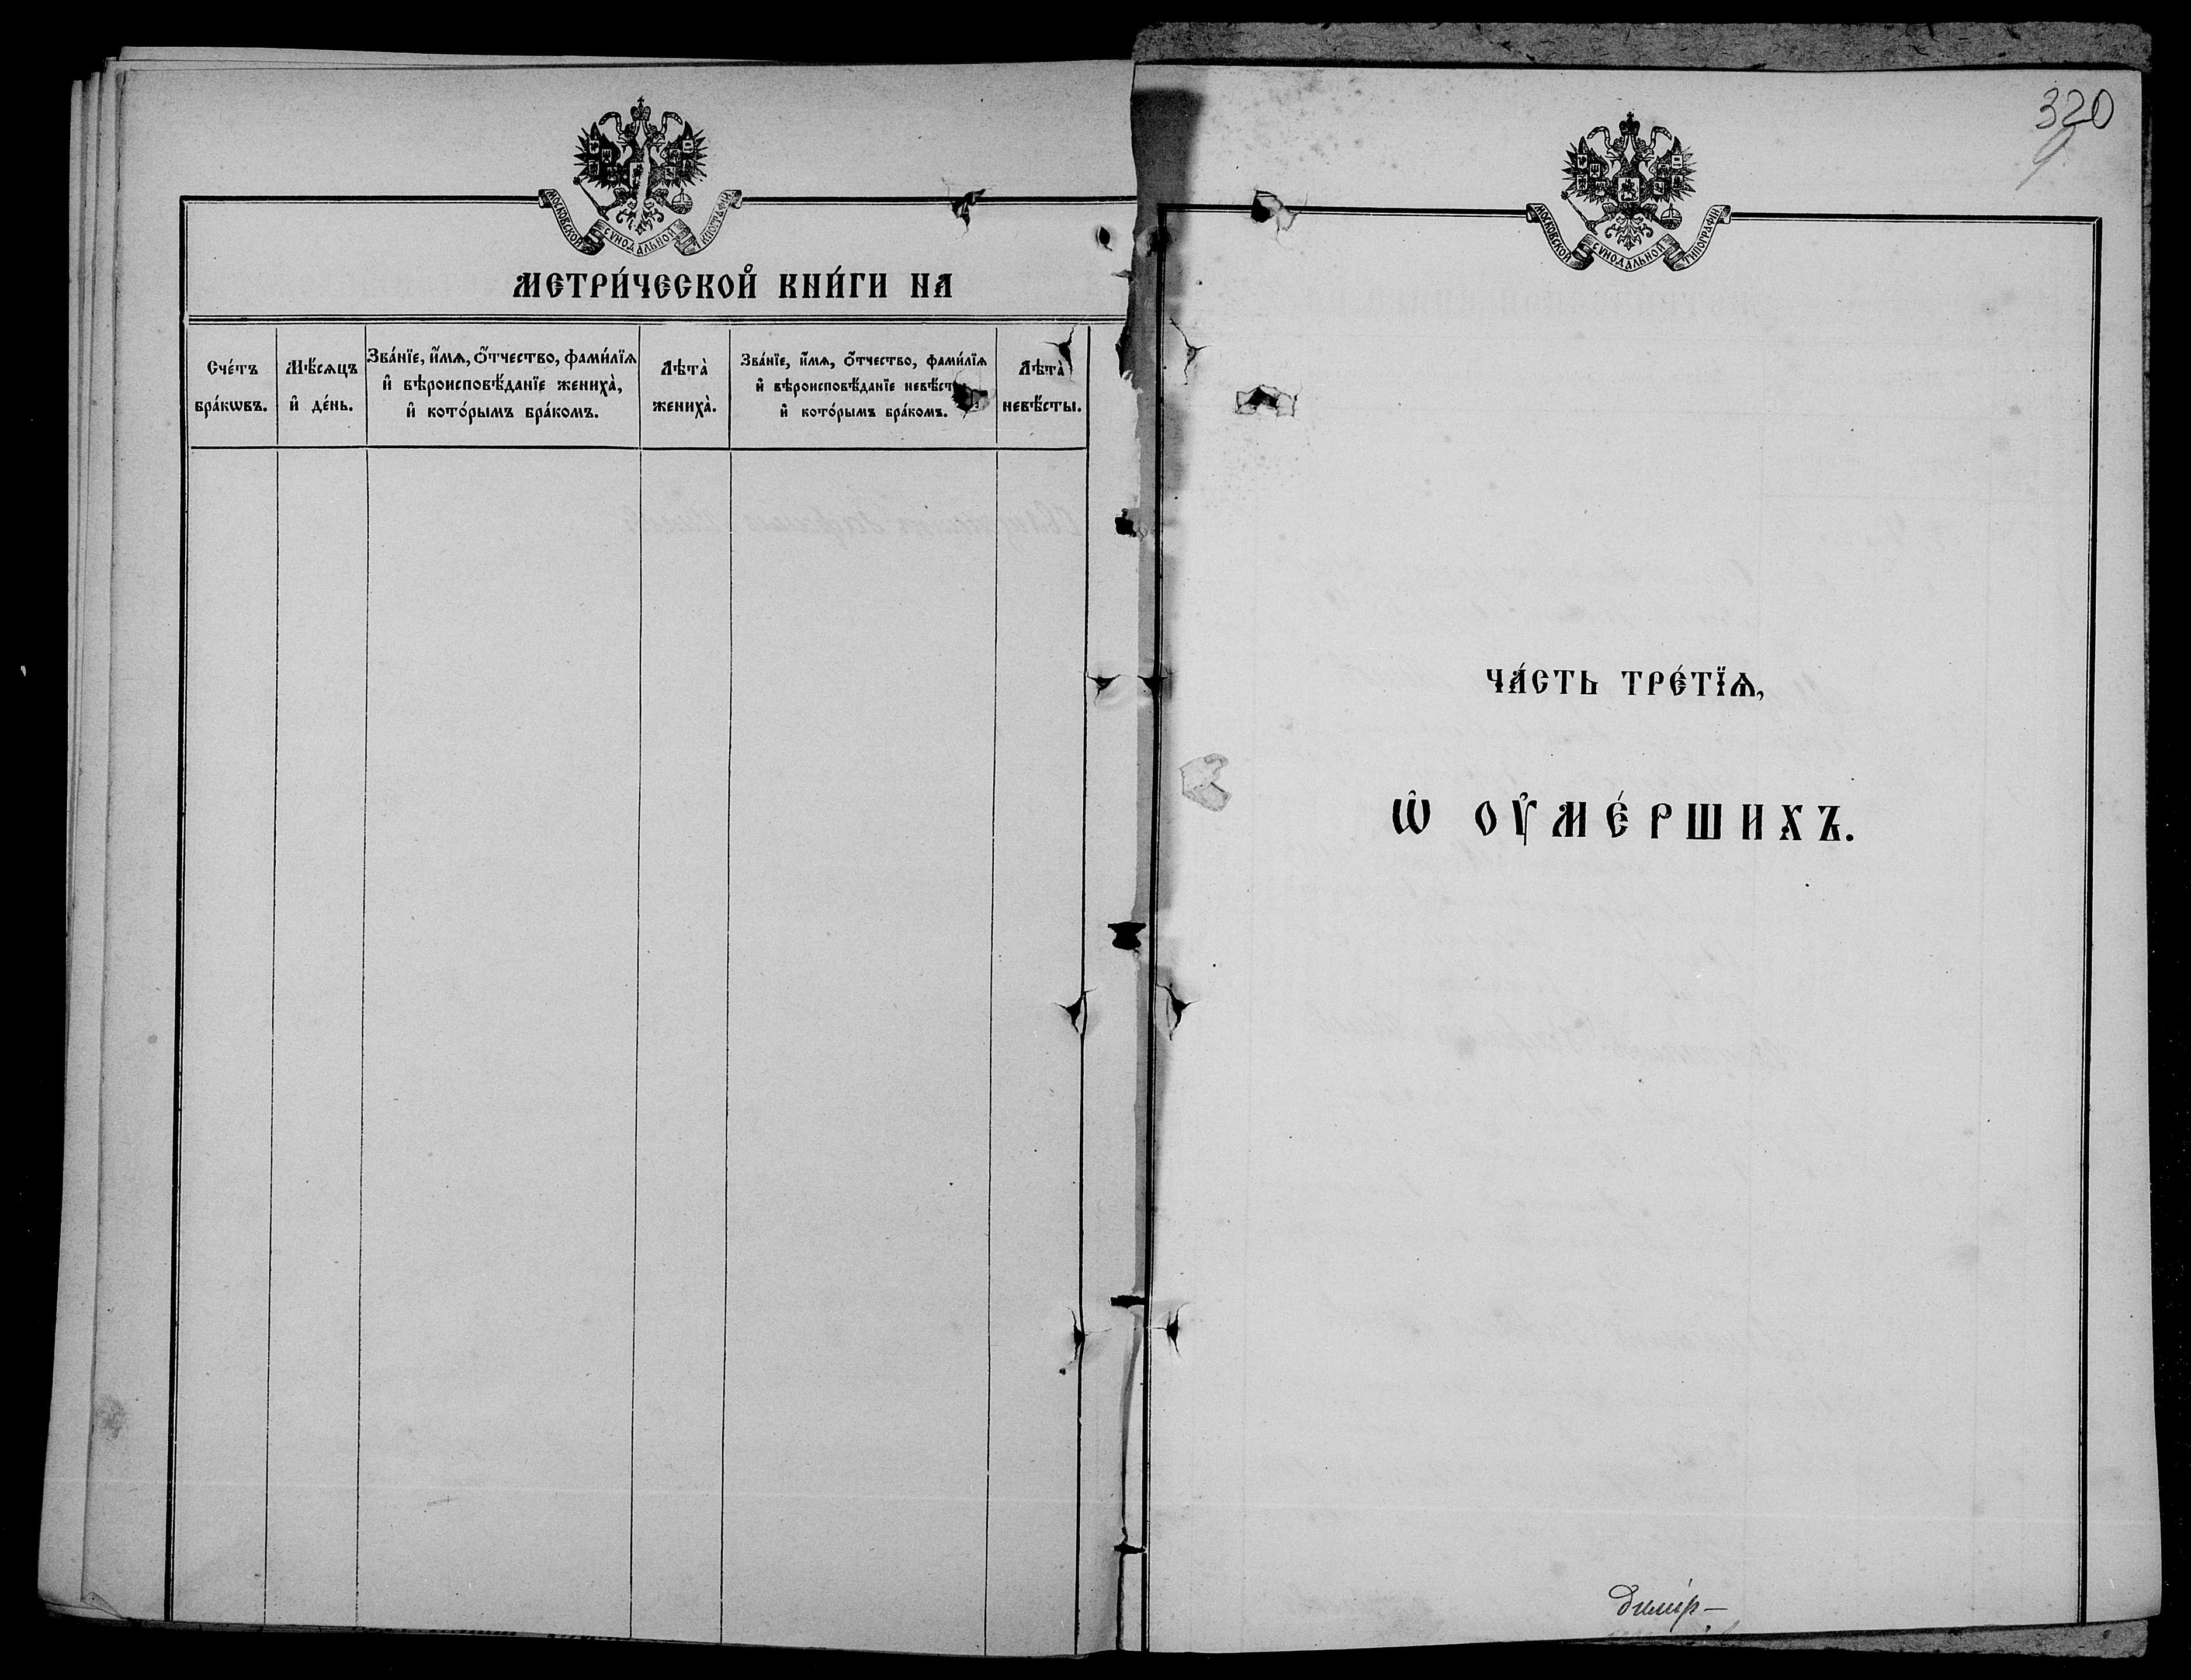 МОСКОВСКОЙ СѴНОДАЛЬНОЙ ТИПОГРАФІИ
МЕТРИ́ЧЕСКОЙ КНИ́ГИ НА
Сче́тъ
бра́кѡвъ.
Мѣ́сѧцъ
и҆ де́нь.
Зва́нїе, и҆́мѧ, ѻ҆́тчество, фами́лїѧ
и҆ вѣроисповѣ́данїе жениха̀,
и҆ кото́рымъ бра́комъ.
Лѣта̀
жениха̀.
Зва́нїе, и҆́мѧ, ѻ҆́тчество, фами́лїѧ
и҆ вѣроисповѣ́данїе
и҆ кото́рымъ бра́комъ.
Лѣта̀
невѣ́сты.
320
МОСКОВСКОЙ СѴНОДАЛЬНОЙ ТИПОГРАФІИ
ЧА́СТЬ ТРЕ́ТЇѦ,
Ѡ҆ ОУ҆МЕ́РШИХЪ.